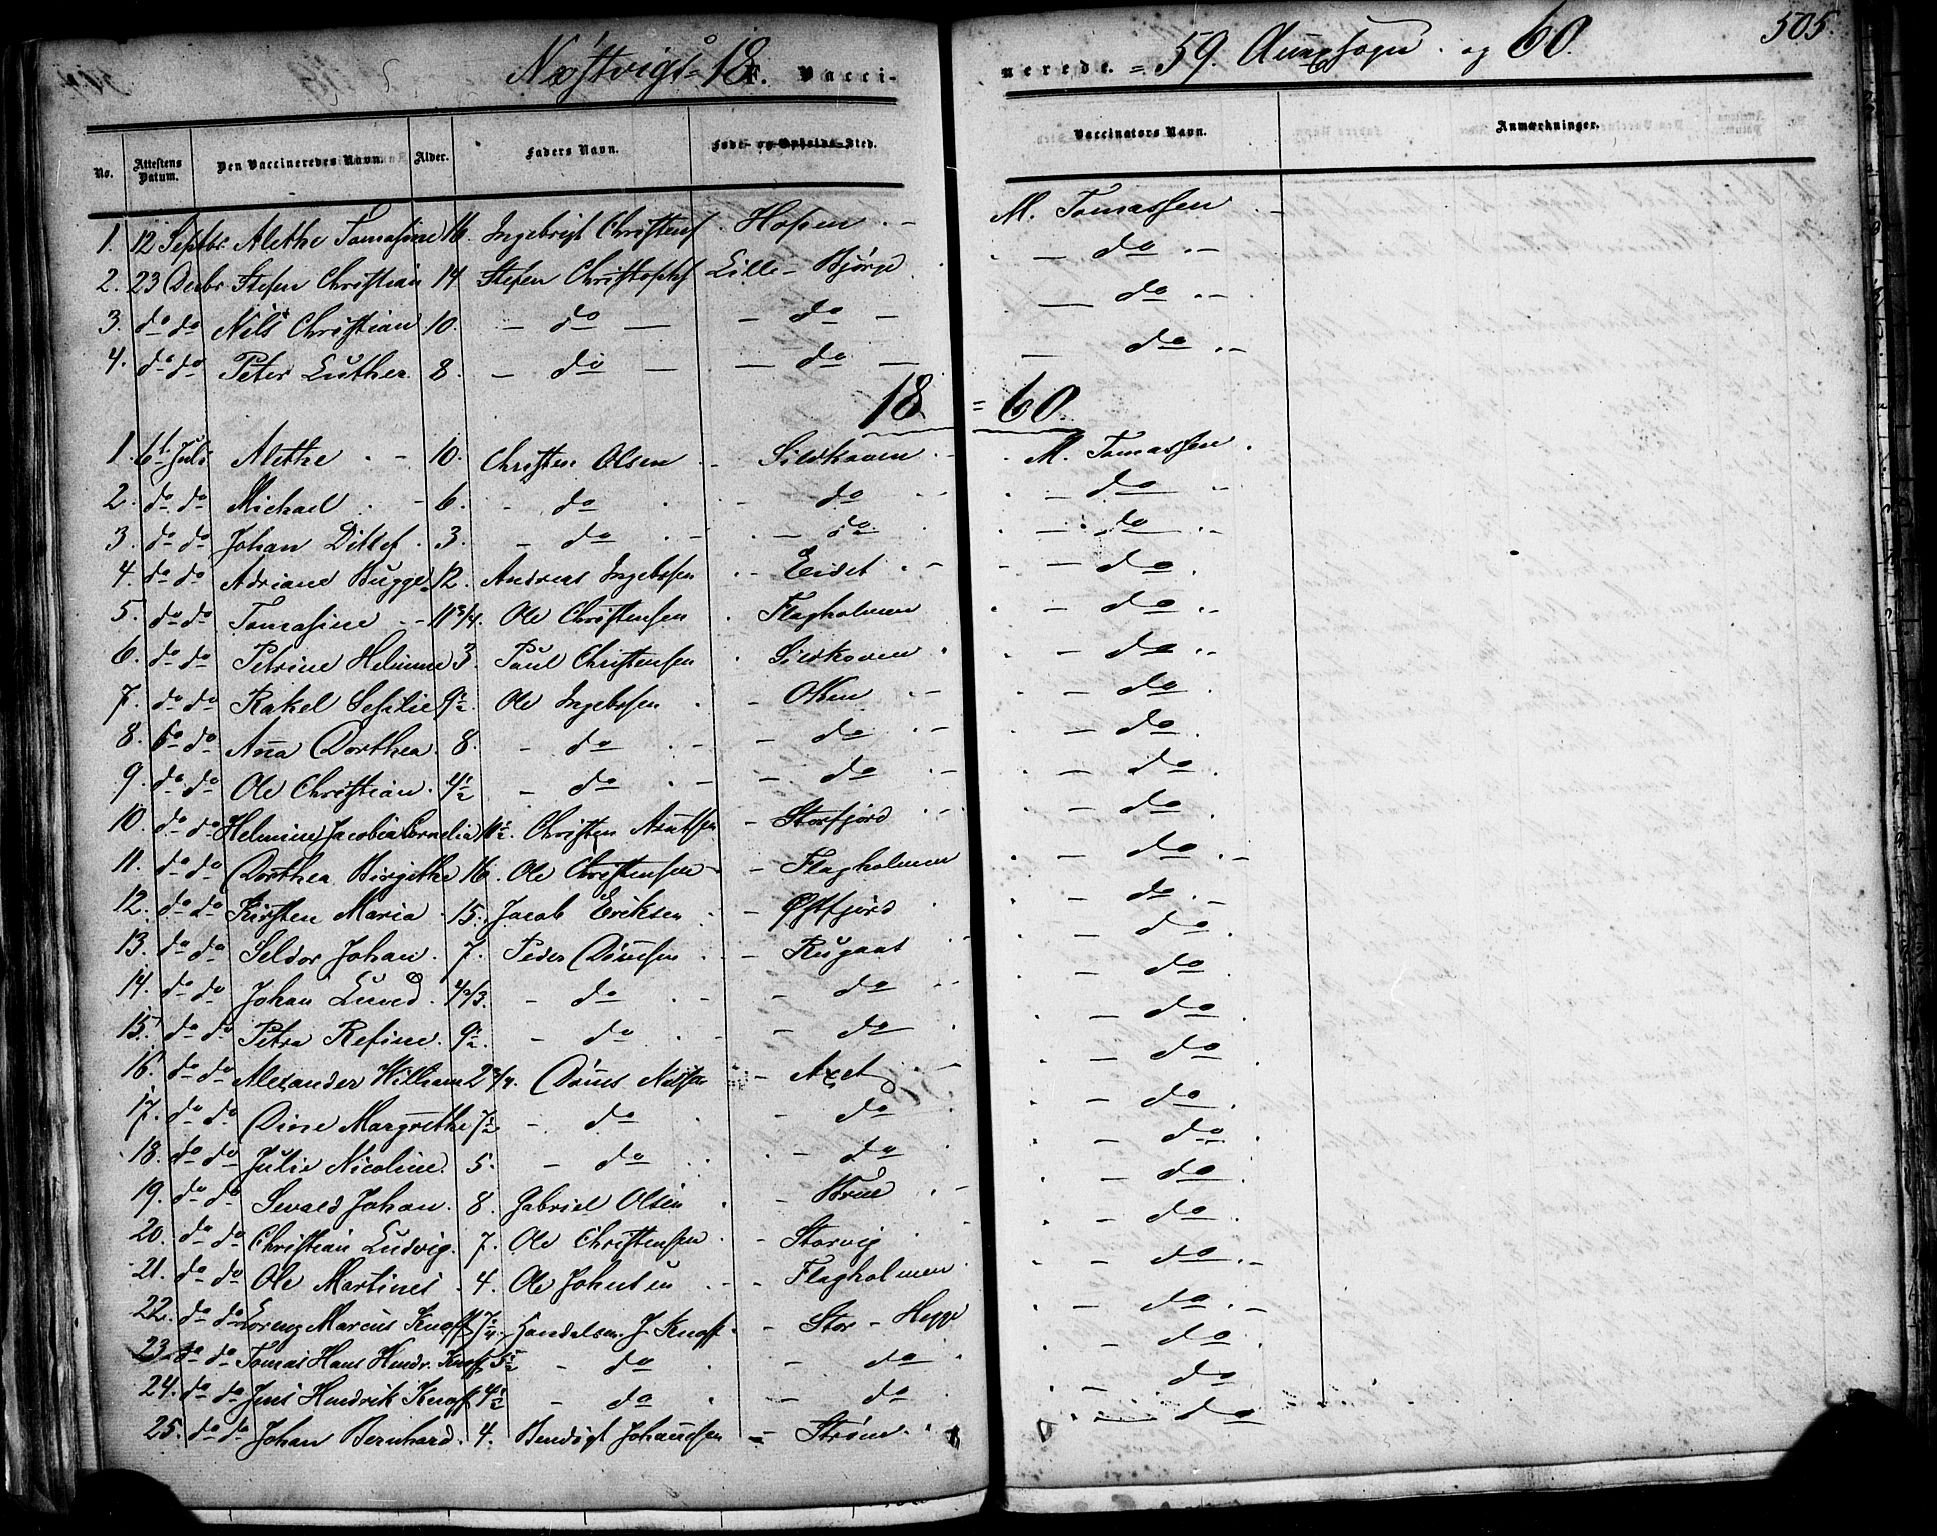 505.
Næstvigs 18 F. Vacci- nerede. = 59. Annexsogn . og 60.
No. Attestens Datum. Den Vaccineredes Navn. Alder. Faders Navn. Føde- og Opholds-Sted. Vaccinators Navn. Anmærkninger.
1. 12 Septbr. Alethe Tomasine 16. Ingebrigt Christens. Hopen - M. Tomassen
2. 23 Decbr Stefen Christian 14 Stefen Christophs Lille-Bjørge - do -
3. do do Nils Christian 10. - do - - do - - do -
4. do do Peter Luther 8. - do - - do - - do -
18 = 60.
1. 6t Juli Alethe - 10. Christen Olsen - Sildhaven - M. Tomassen
2. do do Michael - 6. - do - - do - - do -
3. do do Johan Ditlef . 3. - do - - do - do -
4. do do Adriane Bugge 12. Andreas Ingebrsen - Eidet - - do .
5. do do Tomasine - 11 3/4. Ole Christensen . Flagholmen - do -
6. do do Petrine Helmine 3. Paul Christensen . Sildhaven - do -
7. do do Rakel Sesilie 9 1/2 Ole Ingebrsen - Osen - - do .
8. do do Anna Dorthea. 8. - do - - do - - do .
9. do do Ole Christian. 4 1/2 - do - - do - - do .
10. do do Helmine Jacobia Cornelia 11 1/2. Christen Arntsen - Storfjord - do .
11. do do Dorthea Birgithe 16. Ole Christensen - Flagholmen - do -
12. do do Kirsten Maria . 15. Jacob Eriksen - Østfjord - do -
13. do do Seldor Johan . 7. Peder Dønnesen - Rugaas - do .
14. do do Johan Lured . 4 2/3. - do - - do - - do .
15. do do Petra Refine. 9 1/2. - do - - do . - do .
16. do do Alexander Wilhelm 2 3/4. Dønnes Nilsen - Axet - - do .
17. do do Dine Margrethe 7 1/2 - do - do - do .
18. do do Julie Nicoline. 5. - do - do - do .
19. do do Sevald Johan. 8 Gabriel Olsen - - - do .
20. do do Christian Ludvig. 7. Ole Christensen - Storvig . - do .
21. do do Ole Martines . 4. Ole Johnsen - Flagholmen. - do -
22. do do Lorenz Marcus Knoff 7 1/4. Handelsm. J. Knoff. - Stor-Hegge - do -
23. do do Tomas Hans Hendr. Knoff 5 1/2 - do . - do . - do .
24. do do Jens Hendrik Knoff 4 1/2 - do . - do - do .
25. do do Johan Bernhard. 4. Bendigt Johannesen - Strøm . - do